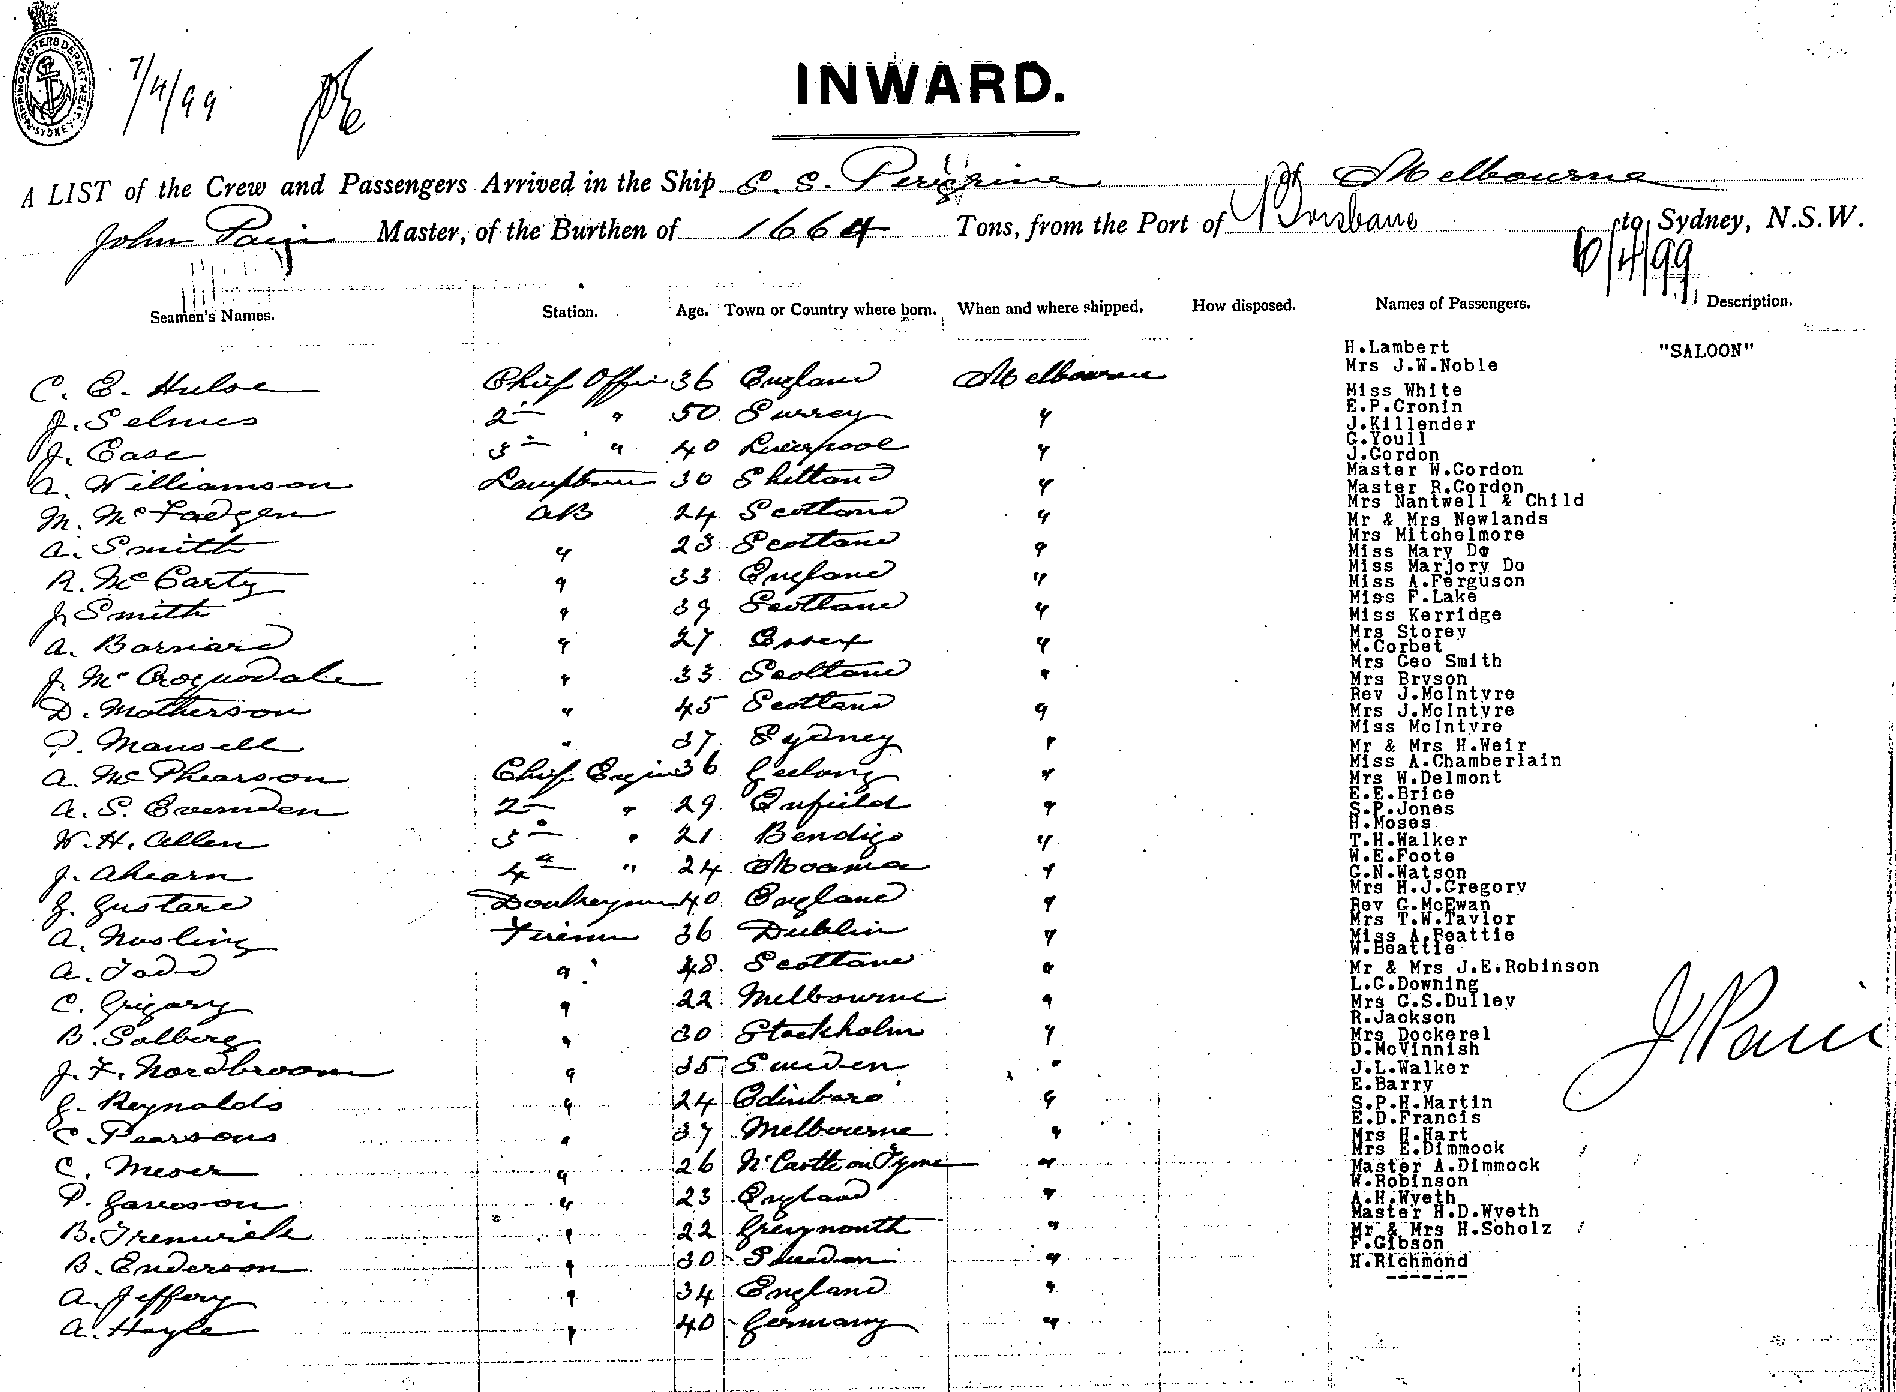 SHIPPING MASTERS DEPARTMENT SYDNEY
7/4/99
INWARD.
A LIST of the Crew and Passengers Arrived in the Ship S. S. Peregrine of Melbourne
John Pain Master, of the Burthen of 1664 Tons, from the Port of Brisbane to Sydney, N.S.W.
6/4/99
Seamen's Names. Station. Age. Town or Country where born. When and where shipped. How disposed. Names of Passengers. Description.
C. E. Hulse Chief Offi 36 England Melbourne
J. Selmes 2nd " 50 Surrey "
J. Case 3rd " 40 Liverpool "
A. Williamson Lamptrim 30 Shetland "
M. McFadgen AB 24 Scotland "
A. Smith " 23 Scotland "
R. McCarty " 33 England "
J. Smith " 39 Scotland "
A. Barnard " 27 Essex "
J. McCroquodale " 33 Scotland "
D. Matherson " 45 Scotland "
P. Mansell " 37 Sydney "
A. McPhearson Chief Engin 36 Geelong "
A. S. Evernden 2nd " 29 Enfield "
W. H. Allen 3rd " 21 Bendigo "
J. Ahearn 4th " 24 Moama "
G. Gustare Donkeyman 40 England "
A. Nosling Firemn 36 Dublin "
A. Todd " 48 Scotland "
C. Grigary " 22 Melbourne "
B. Salberg " 30 Stockholm "
J. F. Nordbroom " 35 Sweden "
G. Reynolds " 24 Edinboro "
C. Pearsons " 37 Melbourne "
C. Meser " 26 N'Castle on Tyne "
P. Gaveson " 23 England "
B. Trenwick " 22 Greymouth "
B. Enderson " 30 Sweden "
A. Jeffery " 34 England "
A. Hayle " 40 Germany "
H.Lambert "SALOON"
Mrs J.W.Noble
Miss White
E.P.Cronin
J.Killender
G.Youll
J.Gordon
Master W.Gordon
Master R.Gordon
Mrs Nantwell & Child
Mr & Mrs Newlands
Mrs Mitchelmore
Miss Mary Do
Miss Marjory Do
Miss A.Ferguson
Miss F.Lake
Miss Kerridge
Mrs Storey
M.Corbet
Mrs Geo Smith
Mrs Bryson
Rev J.McIntyre
Mrs J.McIntyre
Miss McIntyre
Mr & Mrs H.Weir
Miss A.Chamberlain
Mrs W.Delmont
E.E.Brice
S.P.Jones
H.Moses
T.H.Walker
W.E.Foote
G.N.Watson
Mrs H.J.Gregory
Rev G.McEwan
Mrs T.W.Taylor
Miss A.Beattie
W.Beattie
Mr & Mrs J.E.Robinson
L.G.Downing
Mrs G.S.Dulley
R.Jackson
Mrs Dockerel
D.McVinnish
J.L.Walker
E.Barry
S.P.H.Martin
E.D.Francis
Mrs H.Hart
Mrs E.Dimmock
Master A.Dimmock
W.Robinson
A.H.Wyeth
Master H.D.Wyeth
Mr & Mrs H.Scholz
F.Gibson
H.Richmond
J Pain